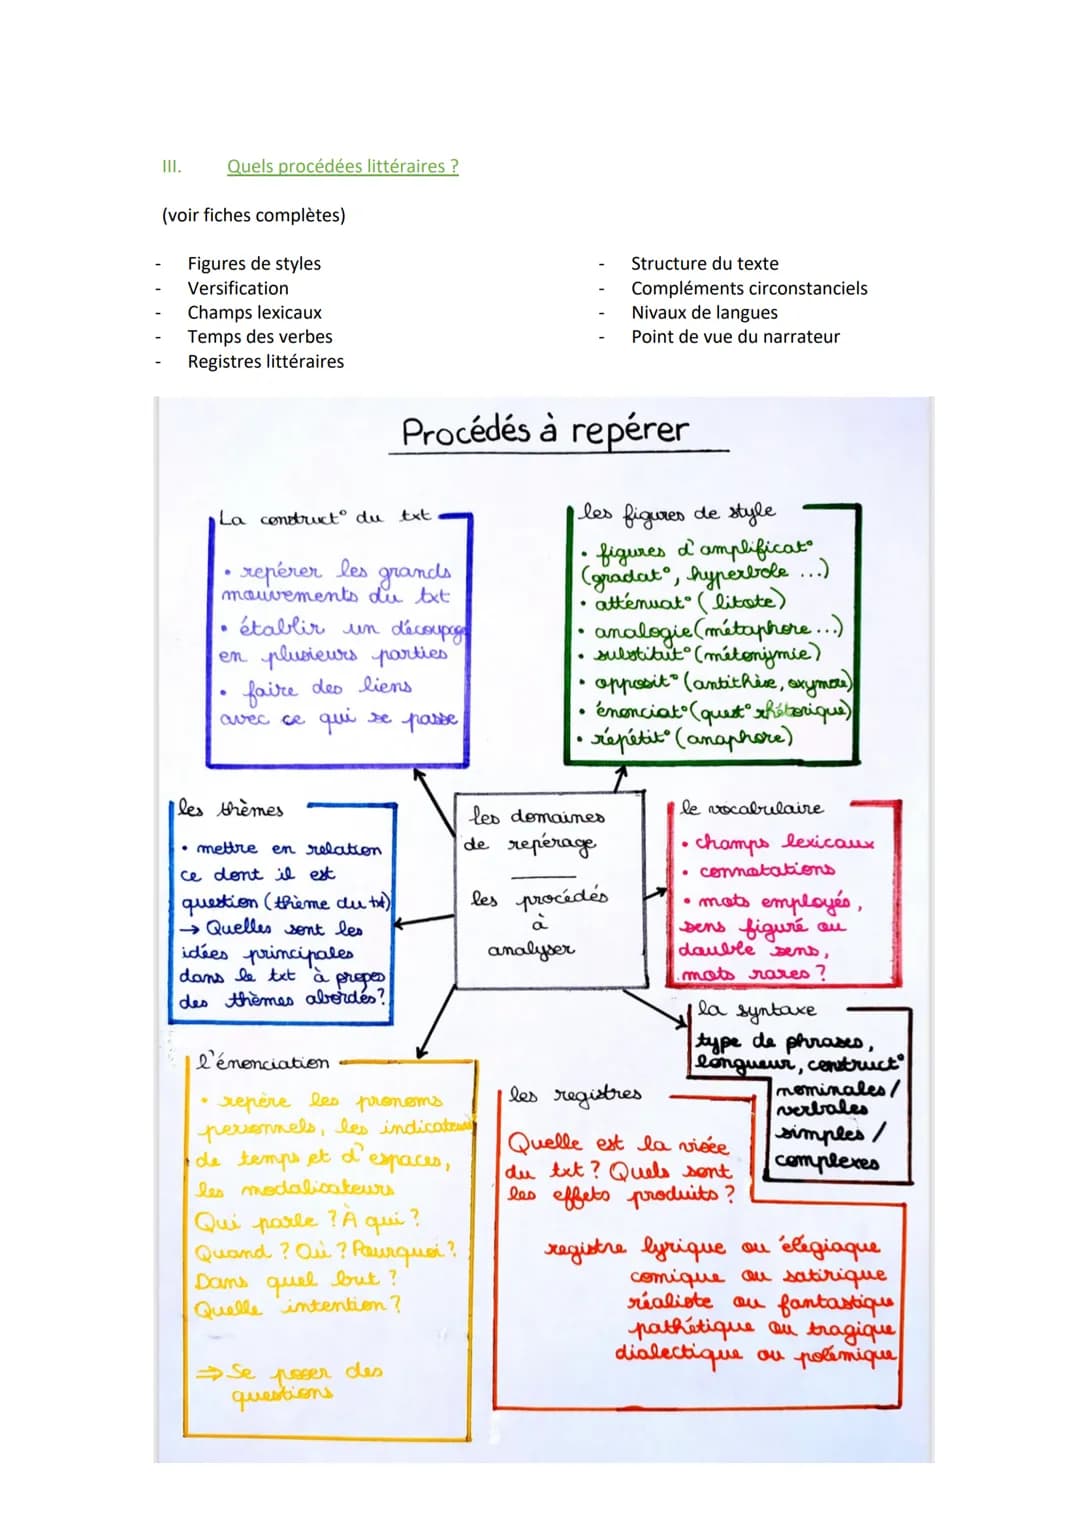 III. Quels procédées littéraires ?
(voir fiches complètes)
- Figures de styles
- Versification
- Champs lexicaux
- Temps des verbes
- Registres littéraires
- Structure du texte
- Compléments circonstanciels
- Nivaux de langues
- Point de vue du narrateur
Procédés à repérer
La construct° du txt
• repérer les grands
mouvements du txt
• établir un découpage
en plusieurs parties
• faire des liens
avec ce qui se passe
les figures de style
• figures d'amplificat°
(gradat°, hyperbole ...)
• atténuat° (litote)
• analogie (métaphore...)
• substitut° (métonymie)
• opposit° (antithèse, oxymore)
• énonciat° (quest° rhétorique)
• répétit° (anaphore)
les thèmes
• mettre en relation
ce dont il est
question (thème du txt)
→ Quelles sont les
idées principales
dans le txt à propos
des thèmes abordés?
les domaines
de repérage
les procédés
à
analyser
le vocabulaire
• champs lexicaux
• connotations
• mots employés,
sens figuré ou
double sens,
mots rares ?
la syntaxe
type de phrases,
longueur, construct°
nominales /
verbales
simples /
complexes
l'énonciation
• repère les pronoms
personnels, les indicateurs
de temps et d'espaces,
les modalisateurs
Qui parle ? À qui ?
Quand ? Où ? Pourquoi ?
Dans quel but ?
Quelle intention ?
⇒ Se poser des
questions
les registres
Quelle est la visée
du txt ? Quels sont
les effets produits ?
registre lyrique ou élégiaque
comique ou satirique
réaliste ou fantastique
pathétique ou tragique
dialectique ou polémique